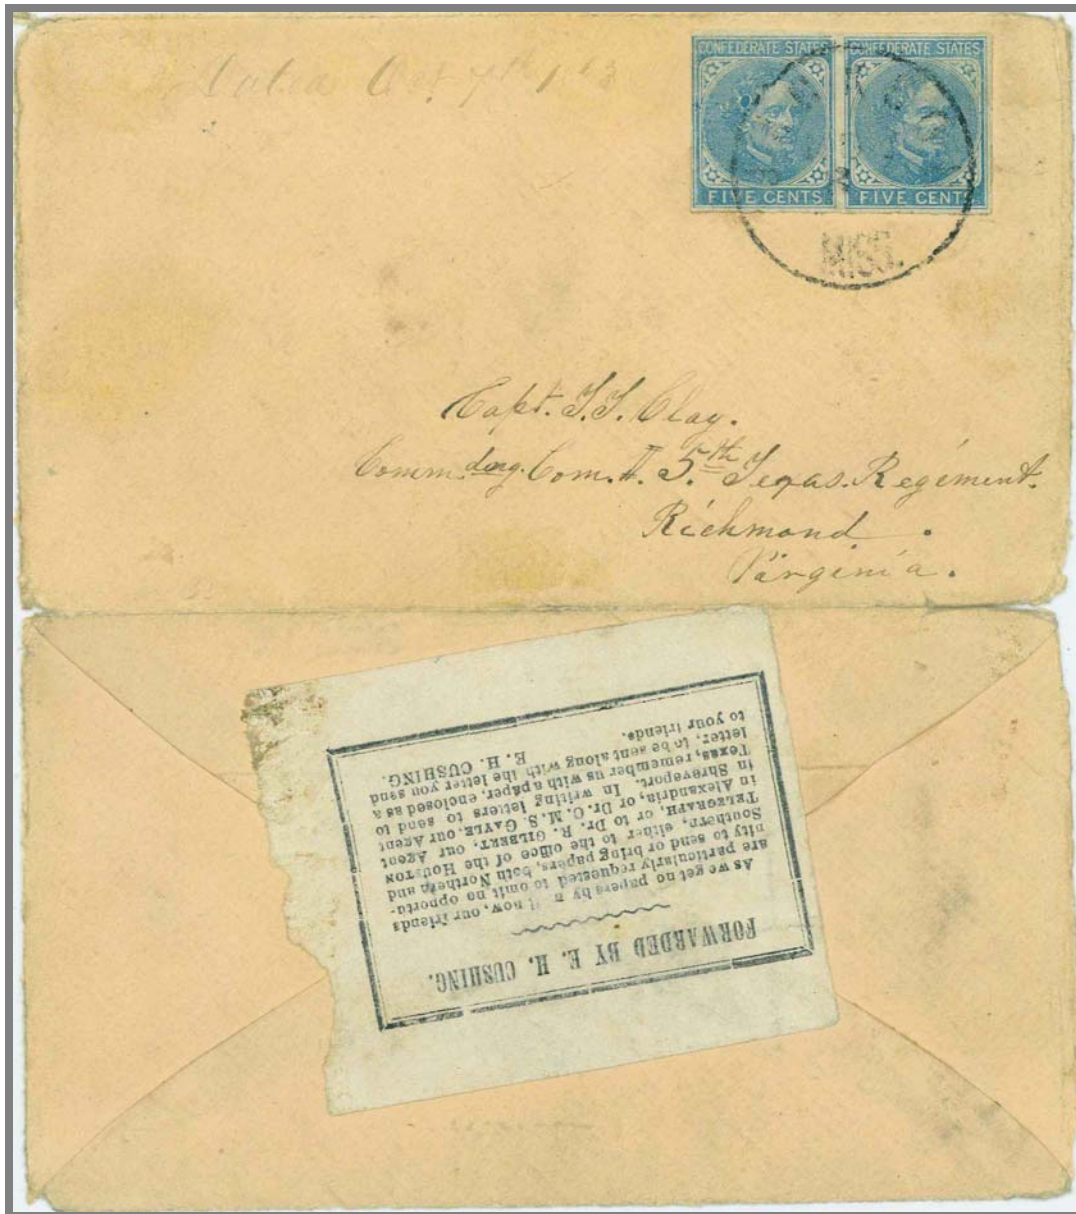 Dated Oct 7th 1863
CONFEDERATE STATES CONFEDERATE STATES
FIVE CENTS FIVE CENTS
MISS.
Capt. T. T. Clay.
Comm.ding. Com. I. 5.th Texas. Regiment.
Richmond.
Virginia.
FORWARDED BY E. H. CUSHING.
As we get no papers by now, our friends
are particularly requested to omit no opportu-
nity to send or bring papers, both Northern and
Southern, either to the office of the HOUSTON
TELEGRAPH, or to Dr. R. GILBERT, our Agent
in Alexandria, or Dr. C. M. S. GAYLE, our Agent
in Shreveport. In writing letters to send to
Texas, remember us with a paper, enclosed as a
letter, to be sent along with the letter you send
to your friends.
E. H. CUSHING.